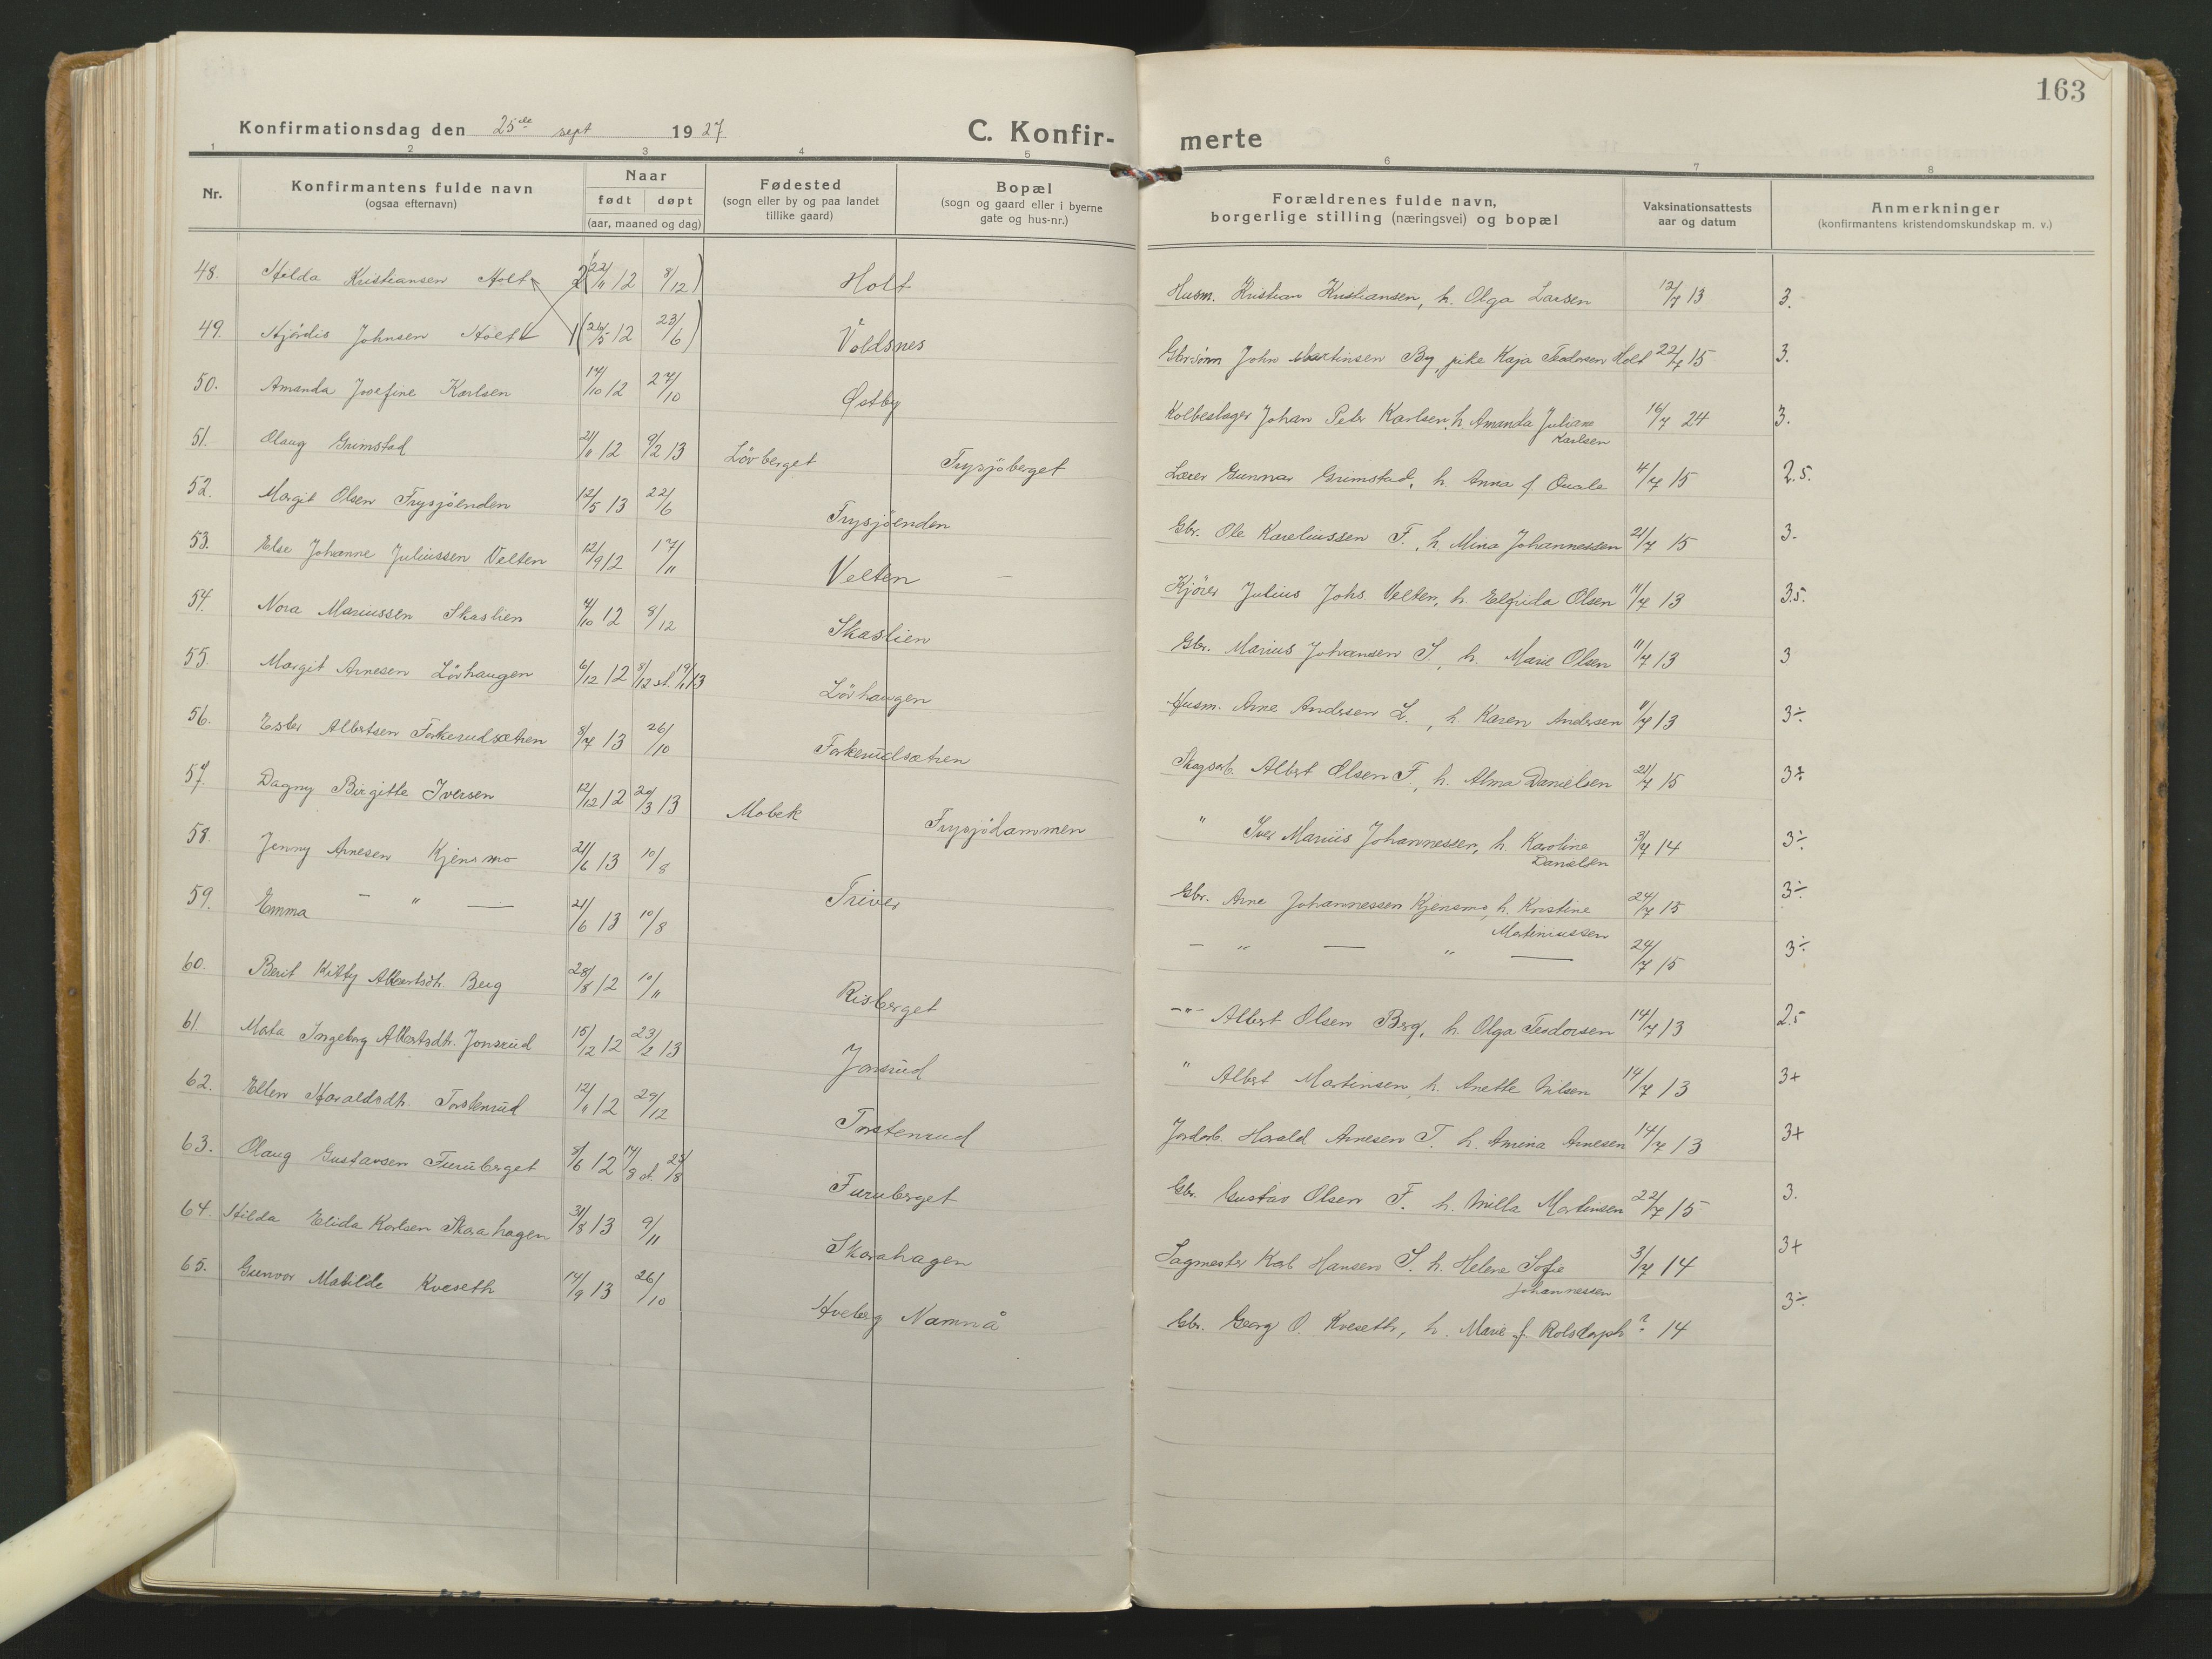 163
Konfirmationsdag den 25de sept 1927
C. Konfir- merte
1 2 3 4 5 6 7 8
Nr.
Konfirmantens fulde navn
(ogsaa efternavn)
Naar
født døpt
(aar, maaned og dag)
Fødested
(sogn eller by og paa landet
tillike gaard)
Bopæl
(sogn og gaard eller i byerne
gate og hus-nr.)
Forældrenes fulde navn,
borgerlige stilling (næringsvei) og bopæl
Vaksinationsattests
aar og datum
Anmerkninger
(konfirmantens kristendomskundskap m. v.)
48. Hilda Kristiansen Holt 2(22/11 12 8/12) Holt Husm. Kristian Kristiansen, h. Olga Larsen 12/7 13 3.
49. Hjördis Johnsen Holt 1(26/5 12 23/6) Voldsnes Gbr.sönn John Martinsen By, pike Kaja Teodorsen Holt 22/7 15 3.
50. Amanda Josefine Karlsen 14/10 12 27/10 Østby Kolbeslager Johan Peter Karlsen, h. Amanda Juliane 16/7 24 3.
Karlsen
51. Olaug Grimstad 21/11 12 9/2 13 Lövberget Frysjöberget Lærer Gunnar Grimstad, h. Anna f. Quale 4/7 15 2.5.
52. Margit Olsen Frysjöenden 12/5 13 22/6 Frysjöenden Gbr. Ole Kareliussen F., h. Mina Johannessen 21/7 15 3.
53. Else Johanne Juliussen Velten 12/9 12 17/11 Velten — Kjörer Julius Johs. Velten, h. Elfrida Olsen 11/7 13 3.5.
54. Nora Mariussen Skaslien 4/10 12 8/12 Skaslien Gbr. Marius Johansen S., h. Marie Olsen 11/7 13 3
55. Margit Arnesen Lövhaugen 6/12 12 8/12 st. 19/1 13 Lövhaugen Husm. Arne Andersen L., h. Karen Andersen 11/7 13 3÷
56. Ester Albertsen Forkerudsætren 8/7 13 26/10 Forkerudsætren Skogsarb. Albert Olsen F., h. Alma Danielsen 21/7 15 3÷
57. Dagny Birgitte Iversen 12/12 12 20/3 13 Mobek Frysjödammen " Iver Marius Johannessen, h. Karoline 3/7 14 3÷
Danielsen
58. Jenny Arnesen Kjensmo 21/6 13 10/8 Triver Gbr. Arne Johannessen Kjensmo, h. Kristine 24/7 15 3÷
Martiniussen
59. Emma — " — 21/6 13 10/8 — " — " — 24/7 15 3÷
60. Berit Kitty Albertsdt. Berg 28/8 12 10/11 Risberget —"— Albert Olsen Berg, h. Olga Teodorsen 14/7 13 2.5
61. Marta Ingeborg Albertsdt. Jonsrud 15/12 12 23/2 13 Jonsrud " Albert Martinsen, h. Anette Nilsen 14/7 13 3+
62. Ellen Haraldsdt. Torstenrud 12/11 12 29/12 Torstenrud Jordarb. Harald Arnesen T. h. Amina Arnesen 14/7 13 3+
63. Olaug Gustavsen Furuberget 8/6 12 14/8 st. 25/8 Furuberget Gbr. Gustav Olsen F. h. Milla Martinsen 22/7 15 3.
64. Hilda Elida Karlsen Skarahagen 31/8 13 9/11 Skarahagen Sagmester Karl Hansen S. h. Helene Sofie 3/7 14 3+
Johannessen
65. Gunvor Matilde Kveseth 14/9 13 26/10 Hveberg Namnå Gbr. Georg O. Kveseth, h. Marie f. Rolsdorph ? 14 3÷